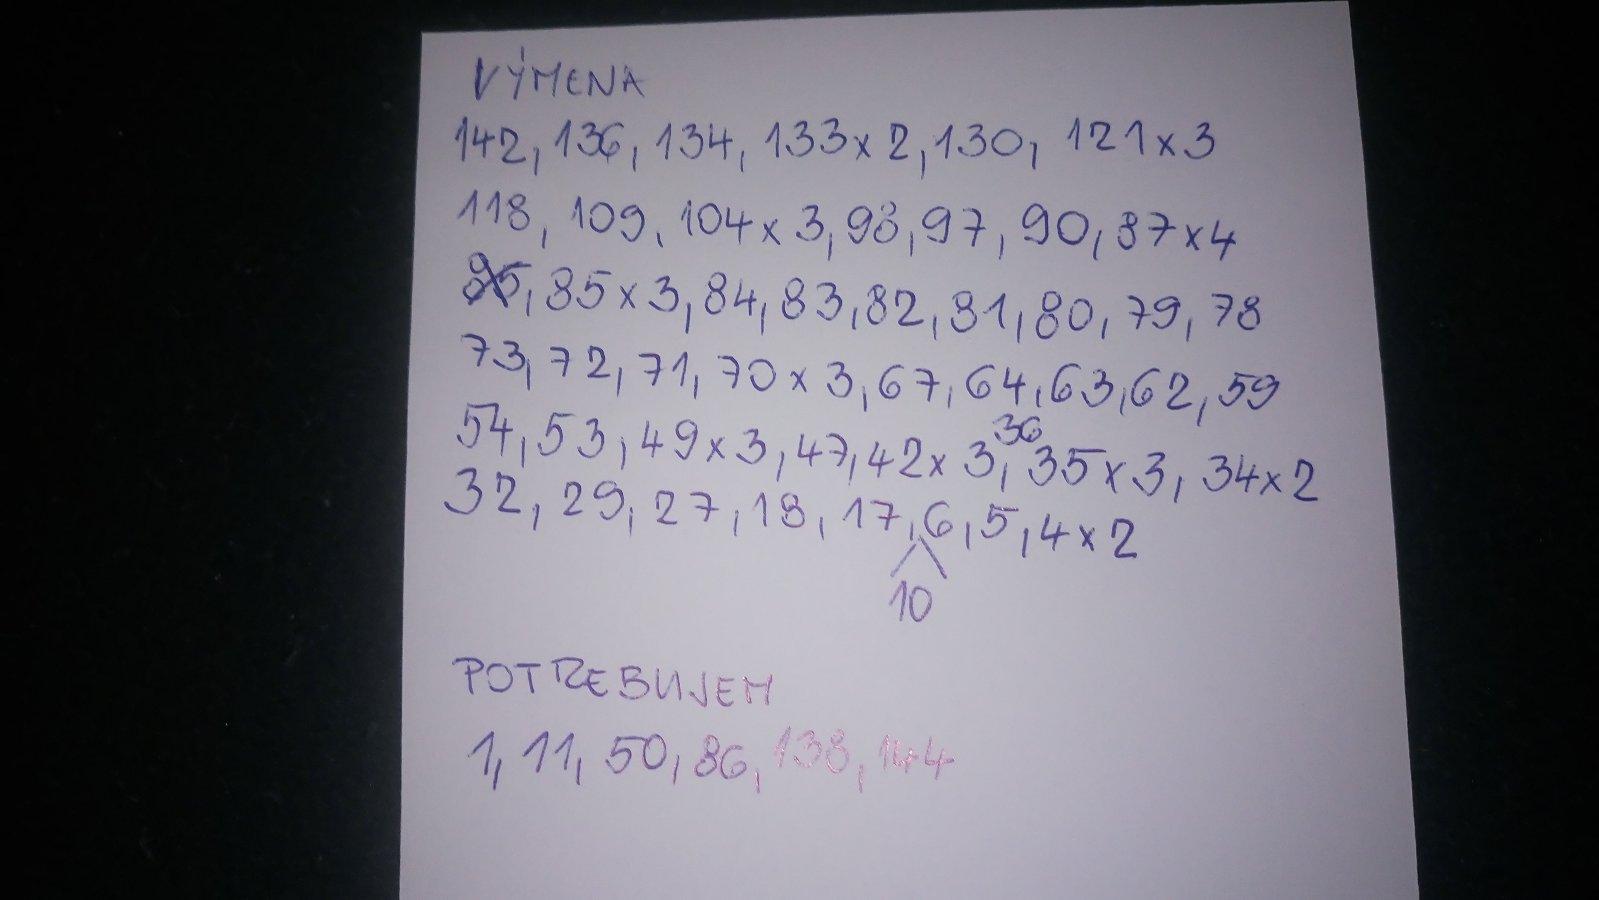 VÝMENA
142, 136, 134, 133x2, 130, 121x3
118, 109, 104x3, 98, 97, 90, 87x4
85x3, 84, 83, 82, 81, 80, 79, 78
73, 72, 71, 70x3, 67, 64, 63, 62, 59
54, 53, 49x3, 47, 42x3, 36 35x3, 34x2
32, 29, 27, 18, 17, 6, 5, 4x2
10
POTREBUJEM
1, 11, 50, 86, 138, 144